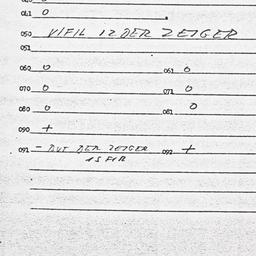 041 0
050 V/FIL 12 DER ZEIGER
051
060 0 061 0
070 0 071 0
080 0 081 0
090 +
091 - DER ZEIGER 092 +